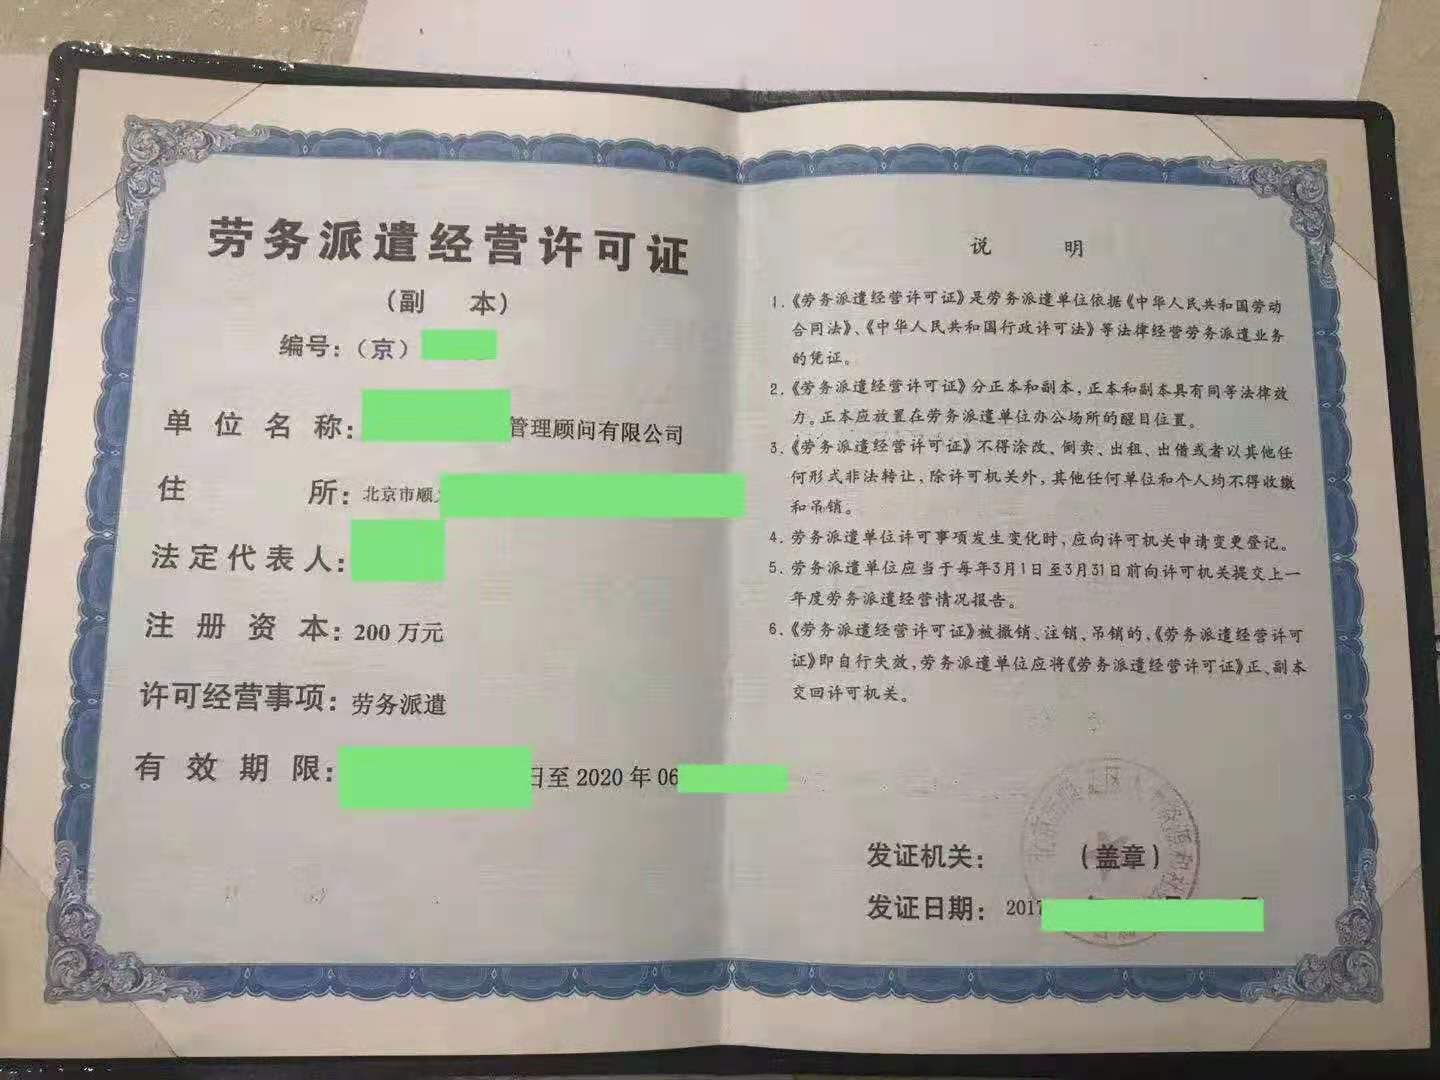 劳务派遣经营许可证
(副 本)
编号:(京)
单位名称: 管理顾问有限公司
住 所: 北京市顺
法定代表人:
注册资本: 200万元
许可经营事项: 劳务派遣
有效期限: 日至2020年06
说 明
1.《劳务派遣经营许可证》是劳务派遣单位依据《中华人民共和国劳动
合同法》、《中华人民共和国行政许可法》等法律经营劳务派遣业务
的凭证。
2.《劳务派遣经营许可证》分正本和副本,正本和副本具有同等法律效
力。正本应放置在劳务派遣单位办公场所的醒目位置。
3.《劳务派遣经营许可证》不得涂改、倒卖、出租、出借或者以其他任
何形式非法转让,除许可机关外,其他任何单位和个人均不得收缴
和吊销。
4.劳务派遣单位许可事项发生变化时,应向许可机关申请变更登记。
5.劳务派遣单位应当于每年3月1日至3月31日前向许可机关提交上一
年度劳务派遣经营情况报告。
6.《劳务派遣经营许可证》被撤销、注销、吊销的,《劳务派遣经营许可
证》即自行失效,劳务派遣单位应将《劳务派遣经营许可证》正、副本
交回许可机关。
发证机关: (盖章)
发证日期: 2017